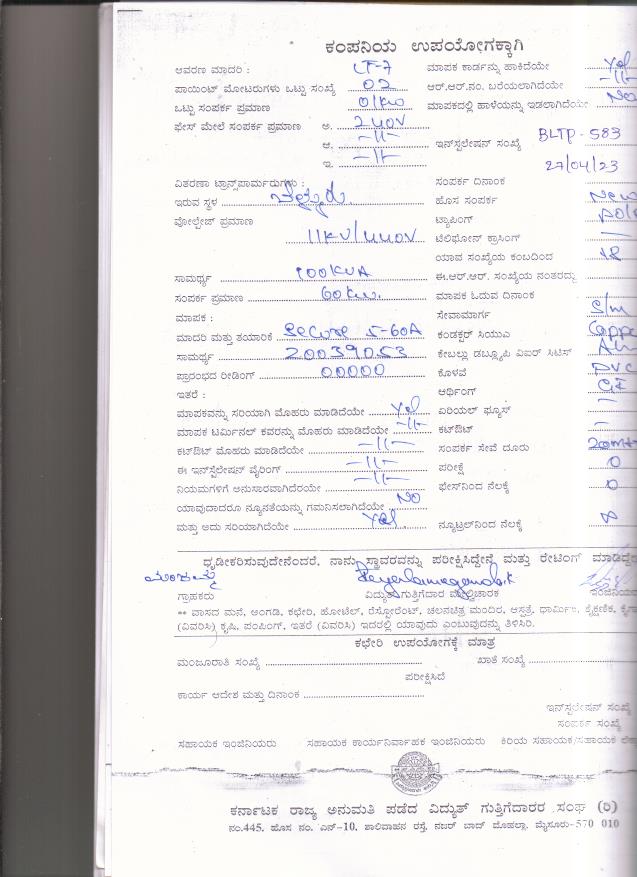 ಕಂಪನಿಯ ಉಪಯೋಗಕ್ಕಾಗಿ
ಆವರಣ ಮಾದರಿ : LT-7 ಮಾಪಕ ಕಾರ್ಡನ್ನು ಹಾಕಿದೆಯೇ Yes
ಪಾಯಿಂಟ್ ಮೋಟರುಗಳು ಒಟ್ಟು ಸಂಖ್ಯೆ 02 ಆರ್.ಆರ್.ನಂ. ಬರೆಯಲಾಗಿದೆಯೇ -11-
ಒಟ್ಟು ಸಂಪರ್ಕ ಪ್ರಮಾಣ 01KW ಮಾಪಕದಲ್ಲಿ ಹಾಳೆಯನ್ನು ಇಡಲಾಗಿದೆಯೇ No
ಫೇಸ್ ಮೇಲೆ ಸಂಪರ್ಕ ಪ್ರಮಾಣ ಅ. 240V
ಆ. -11- ಇನ್‌ಸ್ಟಲೇಷನ್ ಸಂಖ್ಯೆ BLTP-583
ಇ. -11- 27/04/23
ವಿತರಣಾ ಟ್ರಾನ್ಸ್‌ಪಾರ್ಮರುಗಳು : ಸಂಪರ್ಕ ದಿನಾಂಕ
ಇರುವ ಸ್ಥಳ ಹೊಸ ಸಂಪರ್ಕ New
ವೋಲ್ಟೇಜ್ ಪ್ರಮಾಣ ಟ್ಯಾಪಿಂಗ್
11KV/440V ಟೆಲಿಫೋನ್ ಕ್ರಾಸಿಂಗ್ —
ಯಾವ ಸಂಖ್ಯೆಯ ಕಂಬದಿಂದ 18
ಸಾಮರ್ಥ್ಯ 100KVA ಈ.ಆರ್.ಆರ್. ಸಂಖ್ಯೆಯ ನಂತರದ್ದು
ಸಂಪರ್ಕ ಪ್ರಮಾಣ 60KW. ಮಾಪಕ ಓದುವ ದಿನಾಂಕ
ಮಾಪಕ : ಸೇವಾಮಾರ್ಗ S/m
ಮಾದರಿ ಮತ್ತು ತಯಾರಿಕೆ Secure 5-60A ಕಂಡಕ್ಟರ್ ಸಿಯುಎ Coppe
ಸಾಮರ್ಥ್ಯ 20039053 ಕೇಬಲ್ಲು ಡಬ್ಲ್ಯೂಪಿ ವಿಐರ್ ಸಿಟಿಸ್
ಪ್ರಾರಂಭದ ರೀಡಿಂಗ್ 00000 ಕೊಳವೆ PVC
ಇತರೆ : ಆರ್ಥಿಂಗ್ GI
ಮಾಪಕವನ್ನು ಸರಿಯಾಗಿ ಮೊಹರು ಮಾಡಿದೆಯೇ Yes ಏರಿಯಲ್ ಫ್ಯೂಸ್ —
ಮಾಪಕ ಟರ್ಮಿನಲ್ ಕವರನ್ನು ಮೊಹರು ಮಾಡಿದೆಯೇ -11- ಕಟ್‌ಔಟ್ —
ಕಟ್‌ಔಟ್ ಮೊಹರು ಮಾಡಿದೆಯೇ -11- ಸಂಪರ್ಕ ಸೇವೆ ದೂರು
ಈ ಇನ್‌ಸ್ಟೆಲೇಷನ್ ವೈರಿಂಗ್ -11- ಪರೀಕ್ಷೆ 0
ನಿಯಮಗಳಿಗೆ ಅನುಸಾರವಾಗಿದೆರೆಯೇ -11- ಫೇಸ್‌ನಿಂದ ನೆಲಕ್ಕೆ 0
ಯಾವುದಾದರೂ ನ್ಯೂನತೆಯನ್ನು ಗಮನಿಸಲಾಗಿದೆಯೇ No
ಮತ್ತು ಅದು ಸರಿಯಾಗಿದೆಯೇ Yes ನ್ಯೂಟ್ರಲ್‌ನಿಂದ ನೆಲಕ್ಕೆ
ಧೃಡೀಕರಿಸುವುದೇನೆಂದರೆ, ನಾನು ಸ್ಥಾವರವನ್ನು ಪರೀಕ್ಷಿಸಿದ್ದೇನೆ ಮತ್ತು ರೇಟಿಂಗ್ ಮಾಡಿದ್ದೇ
ಗ್ರಾಹಕರು ವಿದ್ಯುತ್ ಗುತ್ತಿಗೆದಾರ ಮೇಲ್ವಿಚಾರಕ ಇಂಜಿನಿಯ
** ವಾಸದ ಮನೆ, ಅಂಗಡಿ, ಕಛೇರಿ, ಹೋಟೆಲ್, ರೆಸ್ಟೋರೆಂಟ್, ಚಲನಚಿತ್ರ ಮಂದಿರ, ಆಸ್ಪತ್ರೆ, ಧಾರ್ಮಿಕ, ಶೈಕ್ಷಣಿಕ, ಕೈಗಾ
(ವಿವರಿಸಿ) ಕೃಷಿ, ಪಂಪಿಂಗ್, ಇತರೆ (ವಿವರಿಸಿ) ಇದರಲ್ಲಿ ಯಾವುದು ಎಂಬುವುದನ್ನು ತಿಳಿಸಿರಿ.
ಕಛೇರಿ ಉಪಯೋಗಕ್ಕೆ ಮಾತ್ರ
ಮಂಜೂರಾತಿ ಸಂಖ್ಯೆ ಖಾತೆ ಸಂಖ್ಯೆ
ಪರೀಕ್ಷಿಸಿದೆ
ಕಾರ್ಯ ಆದೇಶ ಮತ್ತು ದಿನಾಂಕ
ಇನ್‌ಸ್ಟಲೇಷನ್ ಸಂಖ್ಯೆ
ಸಂಪರ್ಕ ಸಂಖ್ಯೆ
ಸಹಾಯಕ ಇಂಜಿನಿಯರು ಸಹಾಯಕ ಕಾರ್ಯನಿರ್ವಾಹಕ ಇಂಜಿನಿಯರು ಕಿರಿಯ ಸಹಾಯಕ/ಸಹಾಯಕ
ಕರ್ನಾಟಕ ರಾಜ್ಯ ಅನುಮತಿ ಪಡೆದ ವಿದ್ಯುತ್ ಗುತ್ತಿಗೆದಾರರ ಸಂಘ (ರಿ)
ನಂ.445, ಹೊಸ ನಂ. ಎನ್-10, ಶಾಲಿವಾಹನ ರಸ್ತೆ, ನಜರ್ ಬಾದ್ ಮೊಹಲ್ಲಾ, ಮೈಸೂರು-570 010